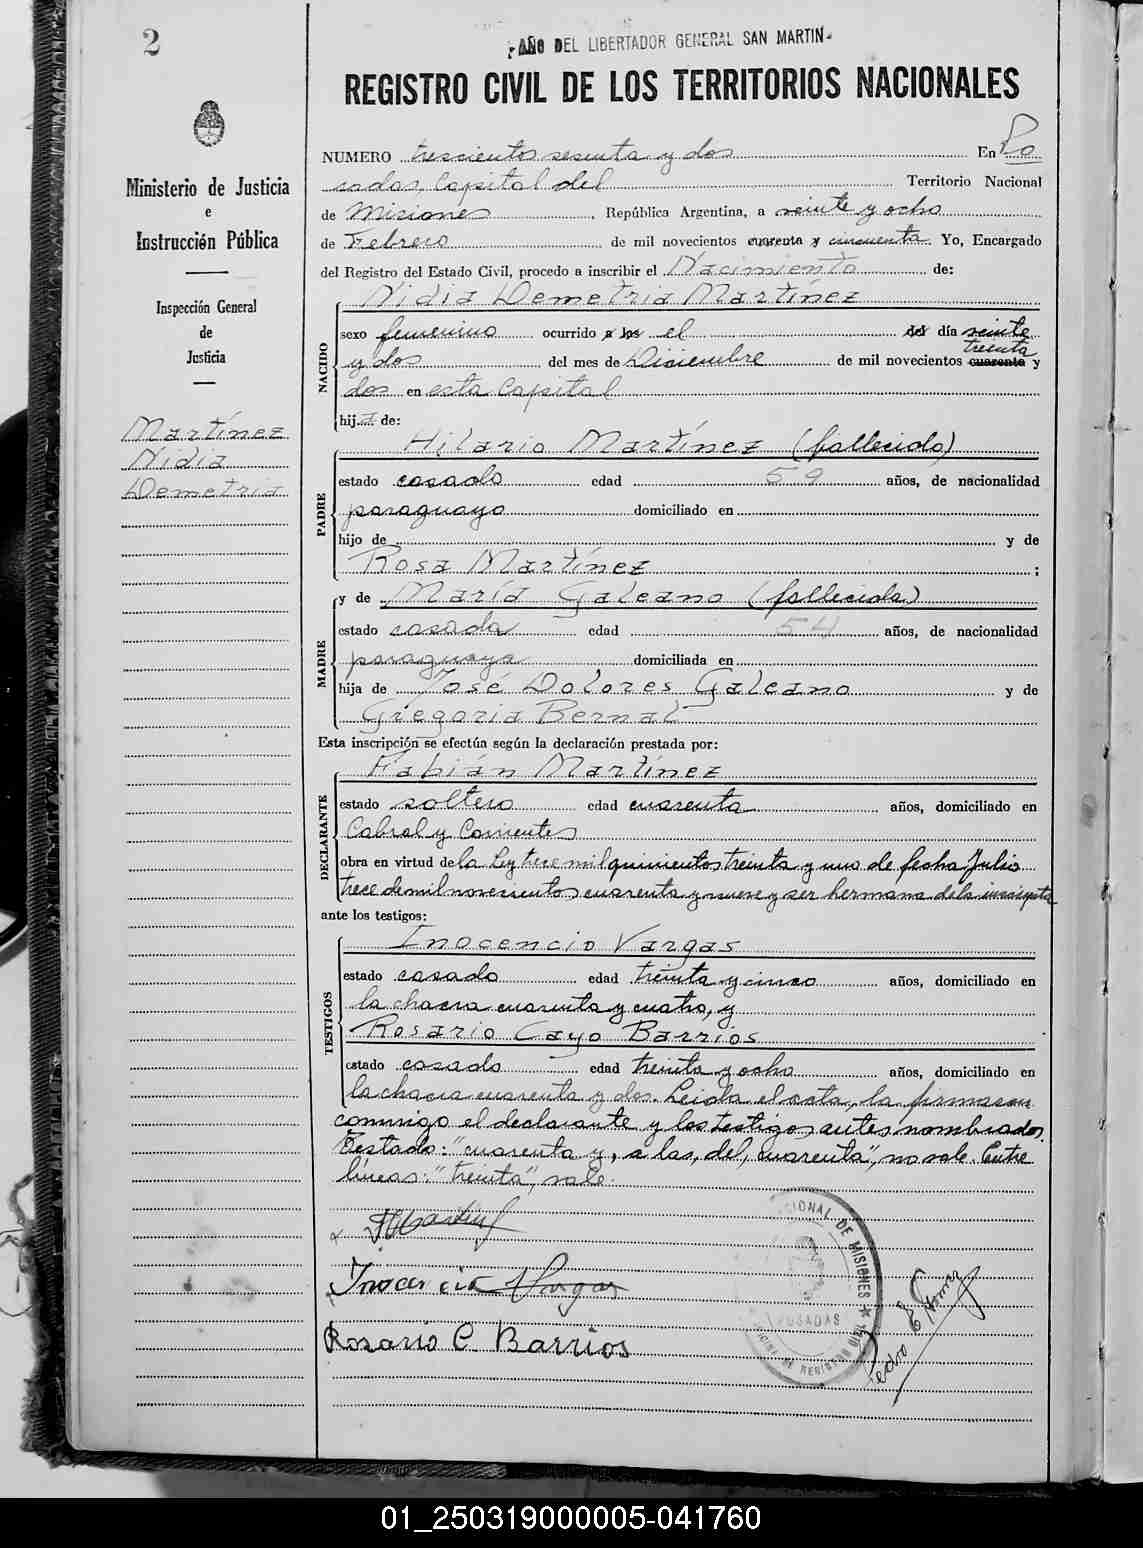 2
AÑO DEL LIBERTADOR GENERAL SAN MARTIN
REGISTRO CIVIL DE LOS TERRITORIOS NACIONALES
Ministerio de Justicia
e
Instrucción Pública
Inspección General
de
Justicia
Martínez
Nidia
Demetria
NUMERO trescientos sesenta y dos En Po
sadas, Capital del Territorio Nacional
de Misiones, República Argentina, a veinte y ocho
de Febrero de mil novecientos cuarenta y cincuenta. Yo, Encargado
del Registro del Estado Civil, procedo a inscribir el Nacimiento de:
NACIDO
Nidia Demetria Martínez
sexo femenino ocurrido a las el del día veinte
treinta
y dos del mes de Diciembre de mil novecientos cuarenta y
dos en esta Capital
hija de:
PADRE
Hilario Martínez (fallecido)
estado casado edad 59 años, de nacionalidad
paraguayo domiciliado en
hijo de y de
Rosa Martínez ;
MADRE
y de María Galeano (fallecida)
estado casada edad 54 años, de nacionalidad
paraguaya domiciliada en
hija de José Dolores Galeano y de
Gregoria Bernal
Esta inscripción se efectúa según la declaración prestada por:
DECLARANTE
Fabián Martínez
estado soltero edad cuarenta años, domiciliado en
Cabral y Corrientes
obra en virtud de la Ley trece mil quinientos treinta y uno de fecha Julio
trece de mil novecientos cuarenta y nueve y ser hermano de la inscripta
ante los testigos:
TESTIGOS
Inocencio Vargas
estado casado edad treinta y cinco años, domiciliado en
la chacra cuarenta y cuatro, y
Rosario Cayo Barrios
estado casado edad treinta y ocho años, domiciliado en
la chacra cuarenta y dos. Leida el acta, la firmaron
conmigo el declarante y los testigos antes nombrados.
Testado: "cuarenta y, a las, del, cuarenta", no vale. Entre
líneas: "treinta", vale.
Inocencio Vargas
Rosario C Barrios
CIONAL DE MISIONES
POSADAS
Pedro E
01_250319000005-041760